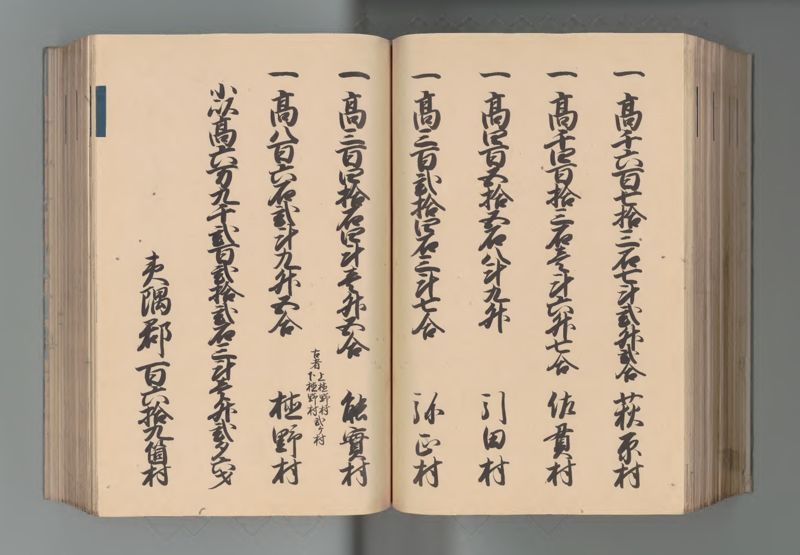 一 高千六百七拾三石七斗弐升弐合 萩原村
一 高千四百拾三石壱斗六升七合 佐貫村
一 高四百五拾五石八斗九升 引田村
一 高三百弐拾四石三斗七合 弥正村
一 高三百四拾石四斗壱升五合 能實村
古者 上植野村 下植野村 弐ケ村
一 高八百六石弐斗九升五合 植野村
小以高六万九千弐百弐拾弐石三斗壱升弐夕六才
夷隅郡 百六拾九箇村